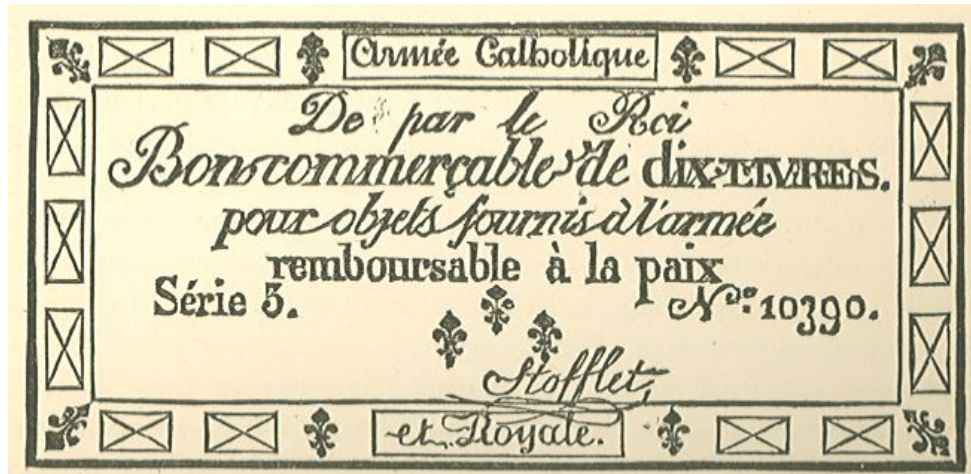 Armée Catholique
De par le Roi
Bon commerçable de dix LIVRES.
pour objets fournis à l'armée
remboursable à la paix
Série 3. N.ro 10390.
Stofflet
et Royale.